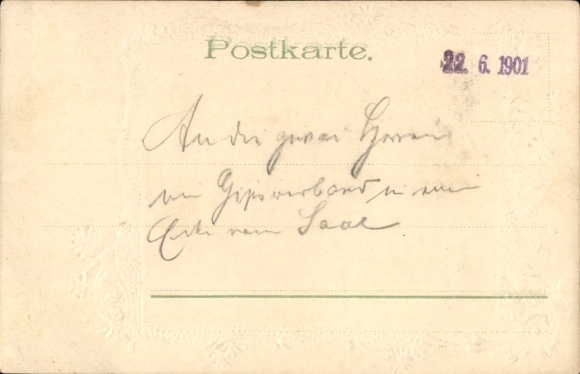 Postkarte.
22. 6. 1901
An die zwei Herren
im Gipsverband in einer
Ecke vom Saal